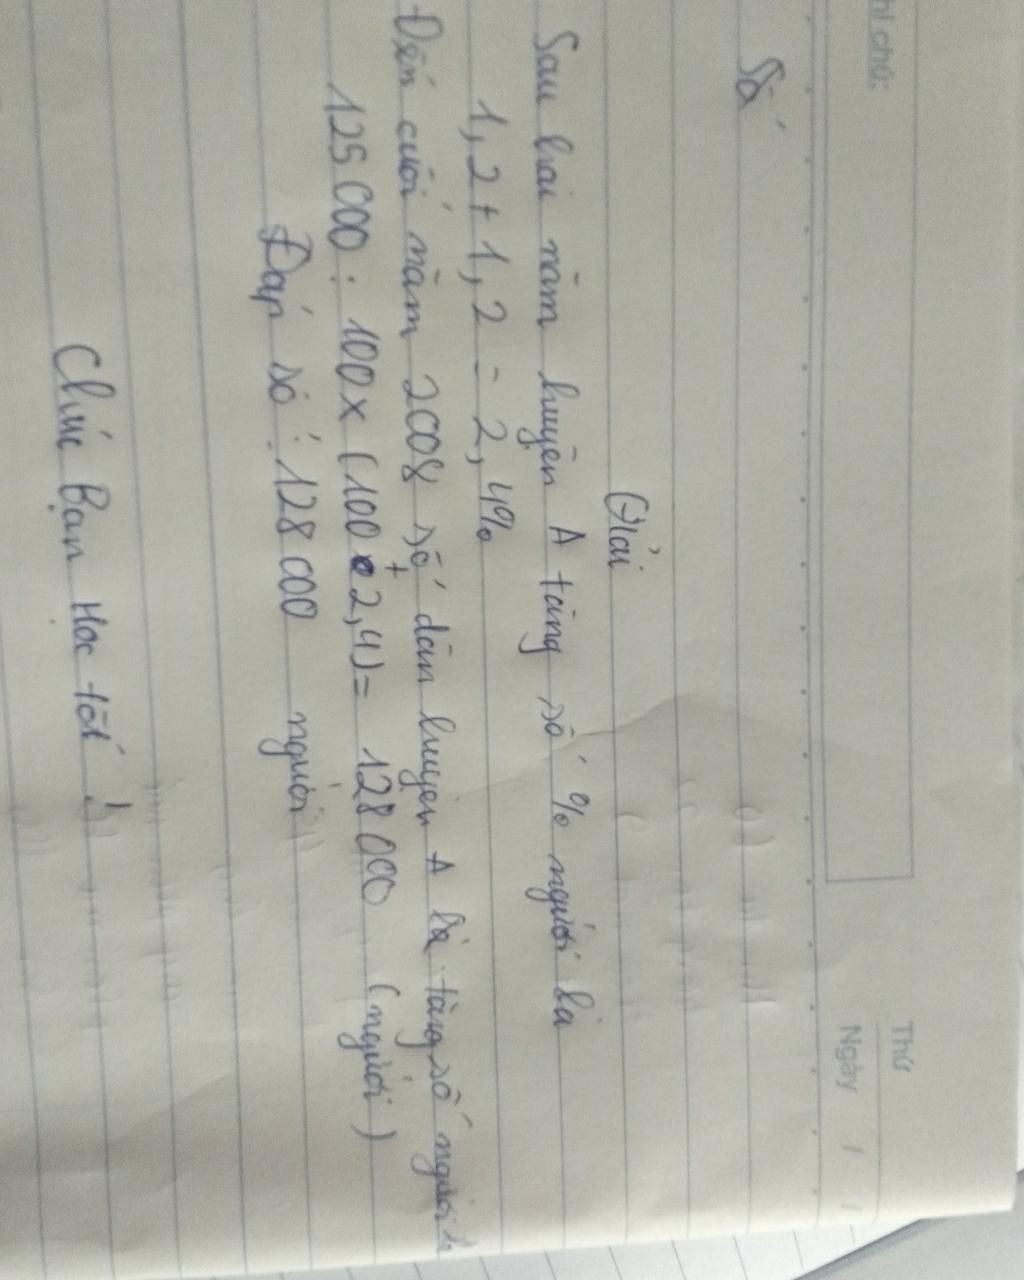 hi chú:
Thứ
Ngày / /
Số
Giải
Sau hai năm huyện A tăng số % người là
1,2 + 1,2 = 2,4%
Đến cuối năm 2008 số dân huyện A là tăng số người là
125 000 : 100 x (100 + 2,4) = 128 000 (người)
Đáp số : 128 000 người
Chúc Bạn Học tốt !